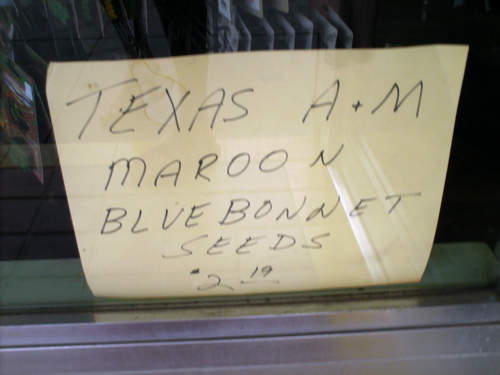 TEXAS A+M
MAROON
BLUEBONNET
SEEDS
$2.19